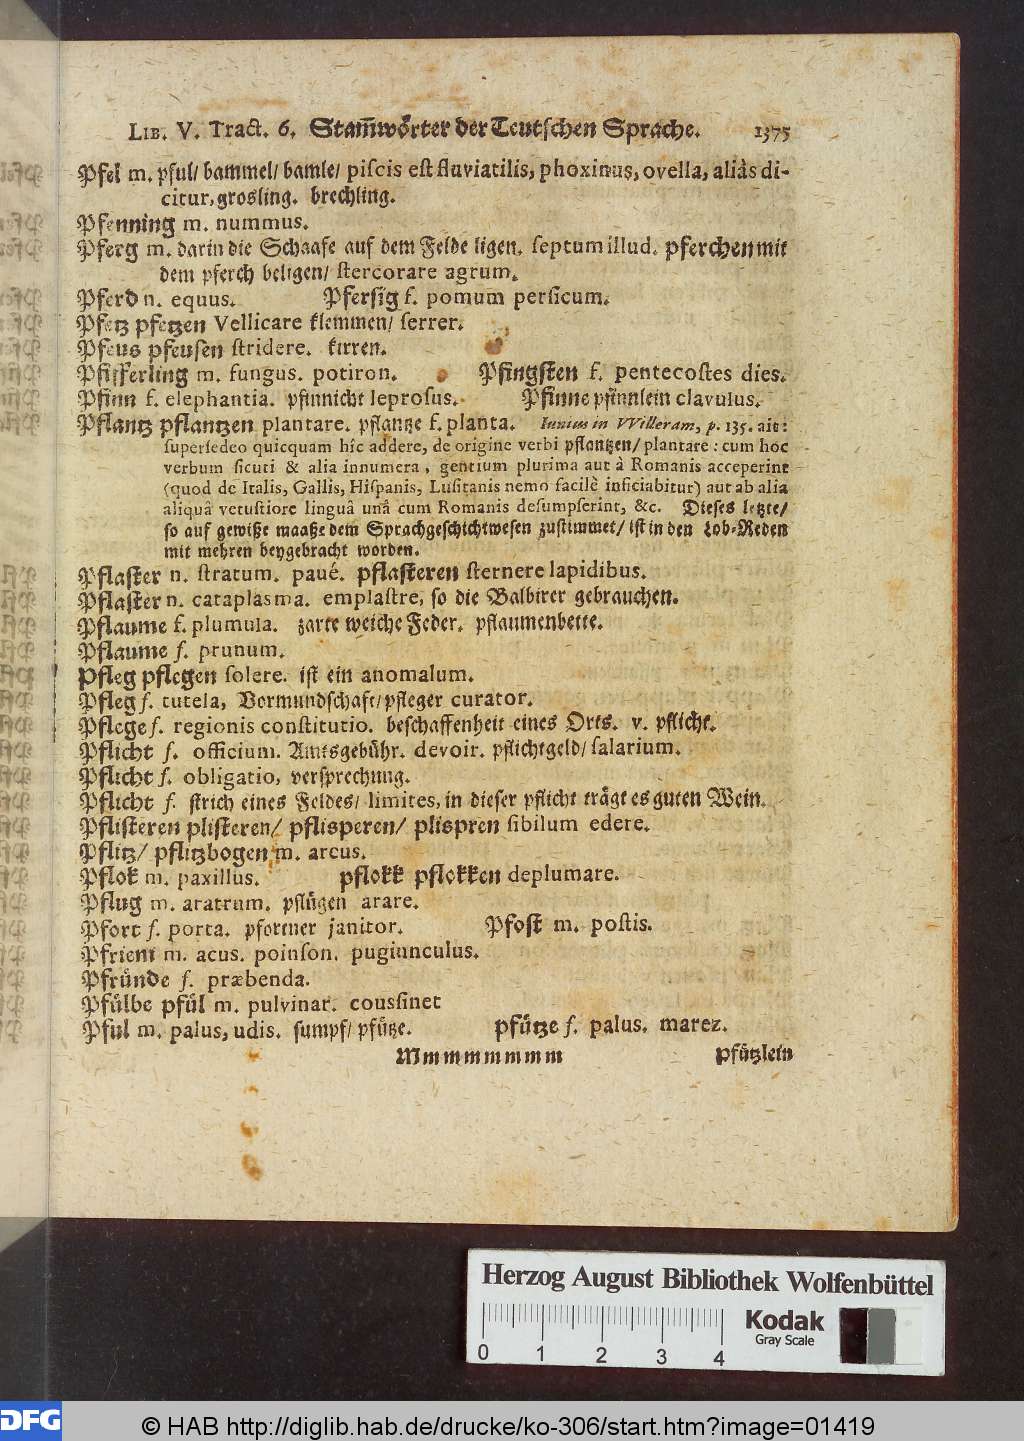 LIB. V. Tract. 6. Stam̃wörter der Teutschen Sprache. 1375
Pfel m. pful/ bammel/ bamle/ piscis est fluviatilis, phoxinus, ovella, aliàs di-
citur, grosling. brechling.
Pfenning m. nummus.
Pferg m. darin die Schaafe auf dem Felde ligen. septum illud. pferchen mit
dem pferch beligen/ stercorare agrum.
Pferd n. equus. Pfersig f. pomum persicum.
Pfetz pfetzen Vellicare klemmen/ serrer.
Pfeus pfeusen stridere. kirren.
Pfifferling m. fungus. potiron. Pfingsten f. pentecostes dies.
Pfinn f. elephantia. pfinnicht leprosus. Pfinne pfinnlein clavulus.
Pflantz pflantzen plantare. pflantze f. planta. Iunius in VVilleram, p. 135. ait:
supersedeo quicquam hîc addere, de origine verbi pflantzen/ plantare: cum hoc
verbum sicuti & alia innumera, gentium plurima aut à Romanis acceperint
(quod de Italis, Gallis, Hispanis, Lusitanis nemo facilè inficiabitur) aut ab alia
aliquâ vetustiore linguâ unâ cum Romanis desumpserint, &c. Dieses letzte/
so auf gewiße maaße dem Sprachgeschichtwesen zustimmet/ ist in den Lob-Reden
mit mehren beygebracht worden.
Pflaster n. stratum. paué. pflasteren sternere lapidibus.
Pflaster n. cataplasma. emplastre, so die Balbirer gebrauchen.
Pflaume f. plumula. zarte weiche Feder. pflaumenbette.
Pflaume f. prunum.
Pfleg pflegen solere. ist ein anomalum.
Pfleg f. tutela, Vormundschaft/ pfleger curator.
Pflege f. regionis constitutio. beschaffenheit eines Orts. v. pflicht.
Pflicht f. officium. Amtsgebühr. devoir. pflichtgeld/ salarium.
Pflicht f. obligatio, versprechung.
Pflicht f. strich eines Feldes/ limites, in dieser pflicht trägt es guten Wein.
Pflisteren plisteren/ pflisperen/ plispren sibilum edere.
Pflitz/ pflitzbogen m. arcus.
Pflok m. paxillus. pflokk pflokken deplumare.
Pflug m. aratrum. pflügen arare.
Pfort f. porta. pfortner janitor. Pfost m. postis.
Pfriem m. acus. poinson. pugiunculus.
Pfründe f. præbenda.
Pfülbe pfül m. pulvinar. coussinet
Pful m. palus, udis. sumpf/ pfütze. pfütze f. palus. marez.
Mmmmmmmm Pfützlein
Herzog August Bibliothek Wolfenbüttel
Kodak
Gray Scale
0 1 2 3 4
DFG © HAB http://diglib.hab.de/drucke/ko-306/start.htm?image=01419